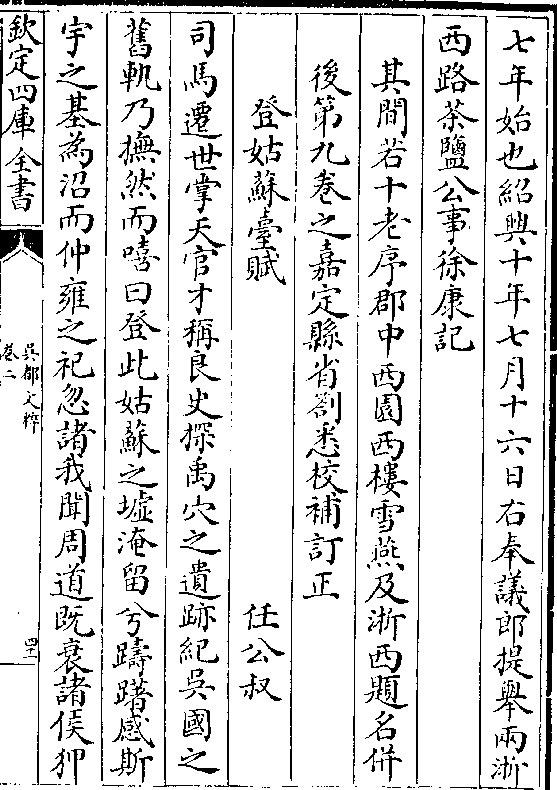 七年始也紹興十年七月十六日右奉議郎提舉兩浙
西路茶鹽公事徐康記
其間若十老序郡中西園西樓雪燕及浙西題名併
後第九卷之嘉定縣省劄悉校補訂正
登姑蘇臺賦 任公叔
司馬遷世掌天官才稱良史探禹穴之遺跡紀吳國之
舊軌乃撫然而嘻曰登此姑蘇之墟淹留兮躊躇感斯
宇之基為沼而仲雍之祀忽諸我聞周道既衰諸侯狎
欽定四庫全書
吳都文粹
卷二
四十一